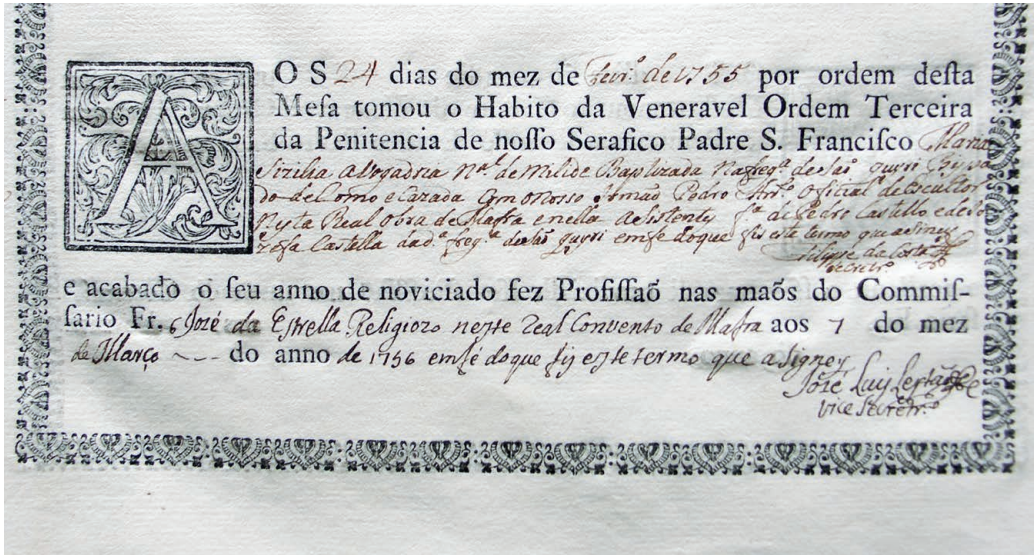 AOS 24 dias do mez de Fevr.º de 1755 por ordem desta
Mesa tomou o Habito da Veneravel Ordem Terceira
da Penitencia de nosso Serafico Padre S. Francisco Maria
Sizilia n.al de Baptizada na freg.ª de
do de Como e Cazada com o nosso Irmaõ Pedro Ant.º Oficial de Escultor
Nesta Real Obra de Mafra e nella asistente f.ª de Pedro Castello e de
Castella da d.ª freg.ª de em fe do que fis este termo que asiney
Felippe da Costa
Secretr.º
e acabado o seu anno de noviciado fez Profissaõ nas maõs do Commis-
sario Fr. Jozé da Estrella Religiozo neste Real Convento de Mafra aos 7 do mez
de Março do anno de 1756 em fé do que fis este termo que asigney
Jozé Luis
vice Secretr.º